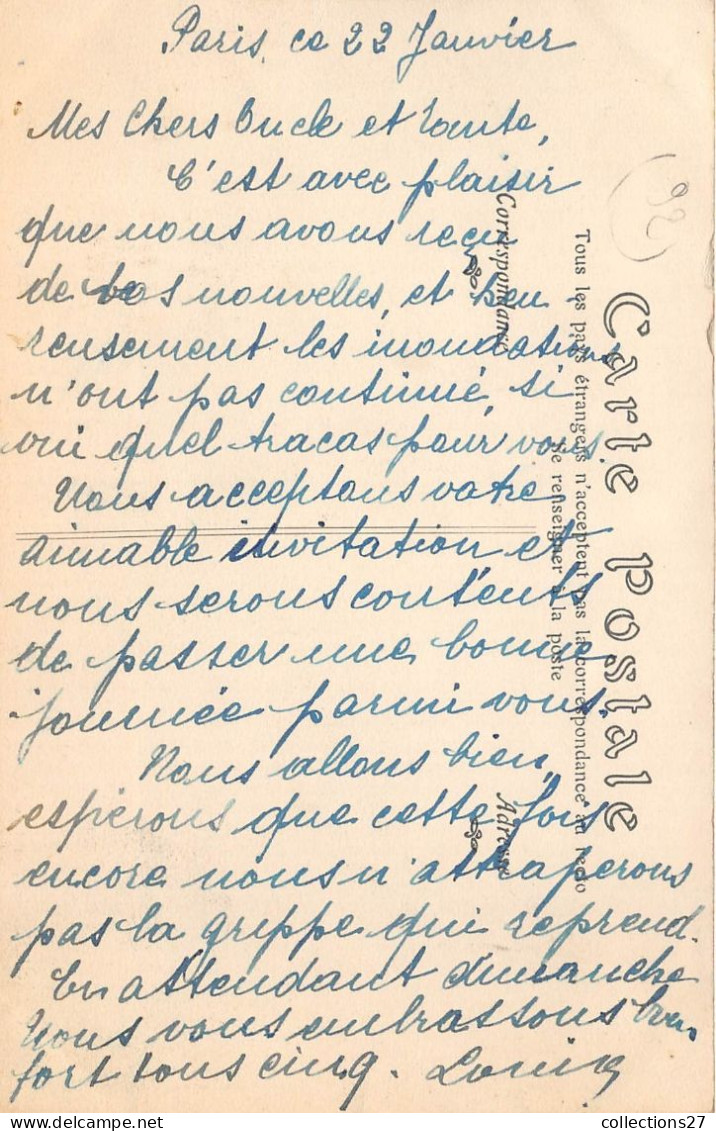 Paris, ce 22 Janvier
Mes Chers Oncle et Tante,
C'est avec plaisir
que nous avons reçu
de vos nouvelles, et heu
reusement les inondations
n'ont pas continué, si
oui quel tracas pour vous.
Nous acceptons votre
aimable invitation et
nous serons contents
de passer une bonne
journée parmi vous.
Nous allons bien,
espérons que cette fois
encore nous n'attraperons
pas la grippe qui reprend.
En attendant dimanche
Nous vous embrassons bien
fort tous cinq.
(92)
Carte Postale
Tous les pays étrangers n'acceptent pas la correspondance au recto
Se renseigner à la poste
Correspondance
Adresse
collections27